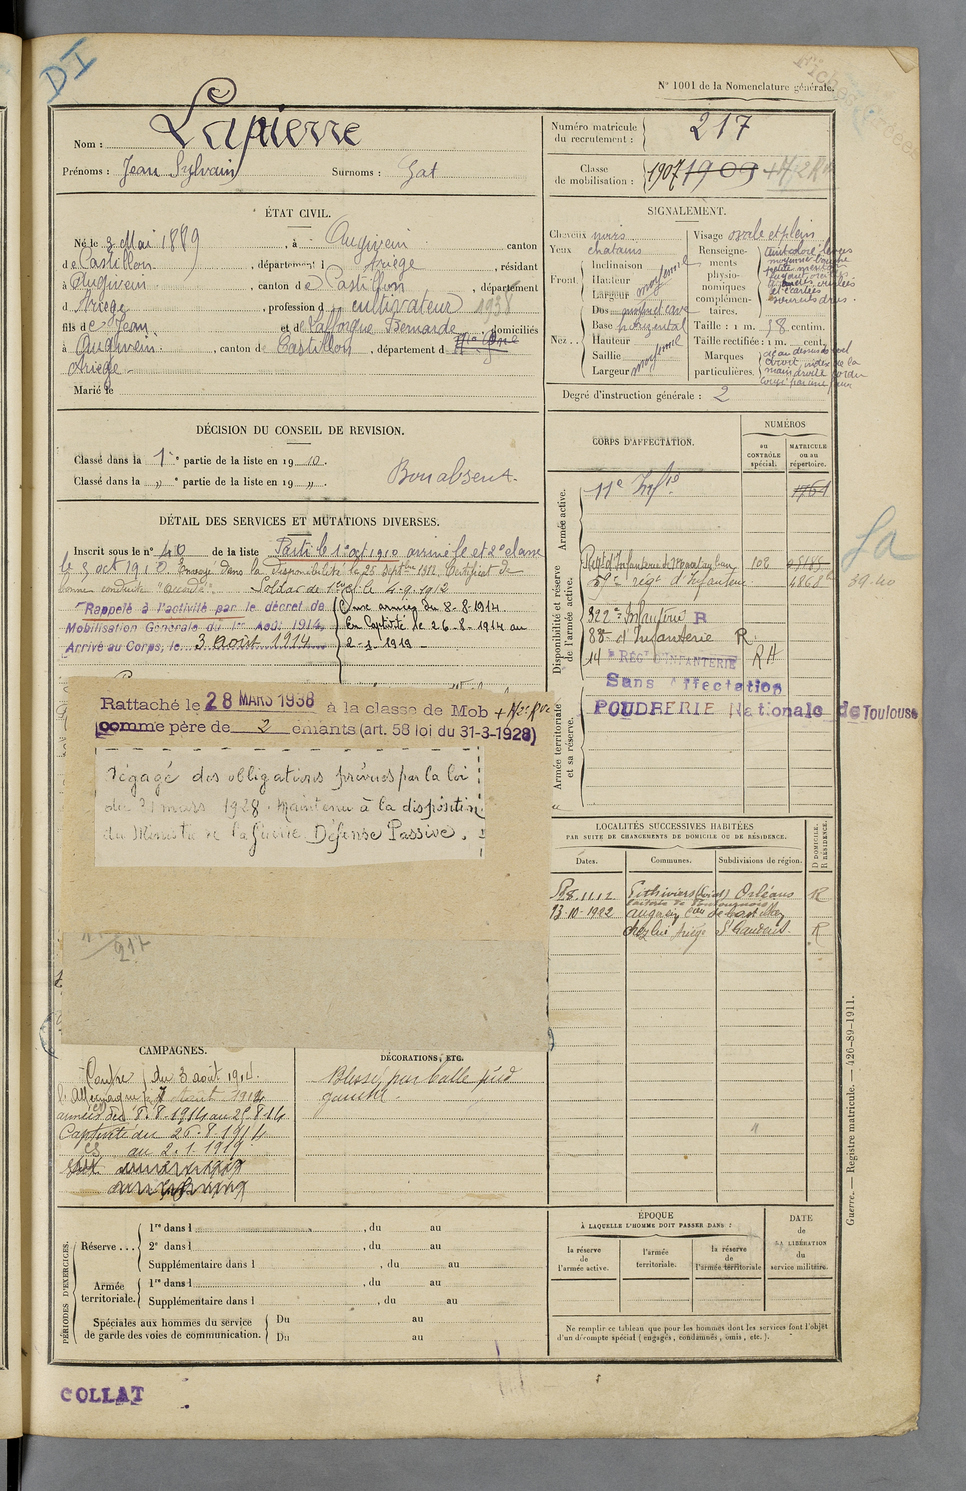 DI
N° 1001 de la Nomenclature générale.
Nom : Lapierre
Prénoms : Jean Sylvain Surnoms : Gat
Numéro matricule du recrutement : 217
Classe de mobilisation : 1907 1909
ÉTAT CIVIL.
Né le 3 Mai 1889, à Augirein canton
de Castillon, département Ariège, résidant
à Augirein, canton de Castillon, département
d Ariège, profession d cultivateur 1938
fils de Jean et de Lafforgue Bernarde, domiciliés
à Augirein, canton de Castillon, département d
Ariège
Marié le
SIGNALEMENT.
Cheveux noirs
Yeux chatains
Front Inclinaison
Hauteur
Largeur moyenne
Nez... Dos
Base horizontal
Hauteur
Saillie
Largeur moyenne
Visage ovale et plein
Renseignements physionomiques complémentaires.
Taille : 1 m. 58 centim.
Taille rectifiée : 1 m. cent.
Marques particulières.
Degré d'instruction générale : 2
DÉCISION DU CONSEIL DE REVISION.
Classé dans la 1re partie de la liste en 1910.
Classé dans la „ e partie de la liste en 19 „.
Bon absent.
DÉTAIL DES SERVICES ET MUTATIONS DIVERSES.
Inscrit sous le n° 40 de la liste Parti le 1er oct 1910 arrivé le et 2e classe
le 3 oct 1910. Envoyé dans la disponibilité le 25 Septbre 1912 Certificat de
bonne conduite "Accordé" Soldat de 1re cl le 4-9-1912
Rappelé à l'activité par le décret de
Mobilisation Générale du 1er Août 1914.
Arrivé au Corps, le 3 août 1914
Aux armées du 8-8-1914.
En Captivité le 26-8-1914 au
2-1-1919
Rattaché le 28 MARS 1938 à la classe de Mob
comme père de 2 enfants (art. 58 loi du 31-3-1928)
Dégagé des obligations prévues par la loi
du 31 mars 1928. Maintenu à la disposition
du Ministre de la Guerre Défense Passive.
217
CORPS D'AFFECTATION.
NUMÉROS
au CONTRÔLE spécial.
MATRICULE ou au répertoire.
Armée active.
11e Inf
1761
Disponibilité et réserve de l'armée active.
59e régt d'Infanterie 4868
39.40
322e Infanterie R
88e d'Infanterie R.
14e RÉGT D'INFANTERIE RA
Sans Affectation
POUDRERIE Nationale de Toulouse
Armée territoriale et sa réserve.
LOCALITÉS SUCCESSIVES HABITÉES
PAR SUITE DE CHANGEMENTS DE DOMICILE OU DE RÉSIDENCE.
Dates. Communes. Subdivisions de région. D DOMICILE. R RÉSIDENCE.
8.11.12 Pithiviers (Loiret) Orléans R
13-10-1922 Augirein
chez lui Ariège St Gaudens. R
CAMPAGNES.
Contre du 3 août 1914
l'Allemagne 7 Août 1914
armées du 8.8.1914 au 25.8.14
Captivité du 26.8.1914
au 2.1.1919
DÉCORATIONS, ETC.
Blessé par balle pied
gauche.
PÉRIODES D'EXERCICES.
Réserve... 1re dans l , du au
2e dans l , du au
Supplémentaire dans l , du au
Armée territoriale. 1re dans l , du au
Supplémentaire dans l , du au
Spéciales aux hommes du service de garde des voies de communication. Du au
Du au
ÉPOQUE
À LAQUELLE L'HOMME DOIT PASSER DANS :
la réserve de l'armée active.
l'armée territoriale.
la réserve de l'armée territoriale
DATE de LA LIBÉRATION du service militaire.
Ne remplir ce tableau que pour les hommes dont les services font l'objet
d'un décompte spécial (engagés, condamnés, omis, etc.).
Guerre. — Registre matricule. — 426-89-1911.
COLLAT